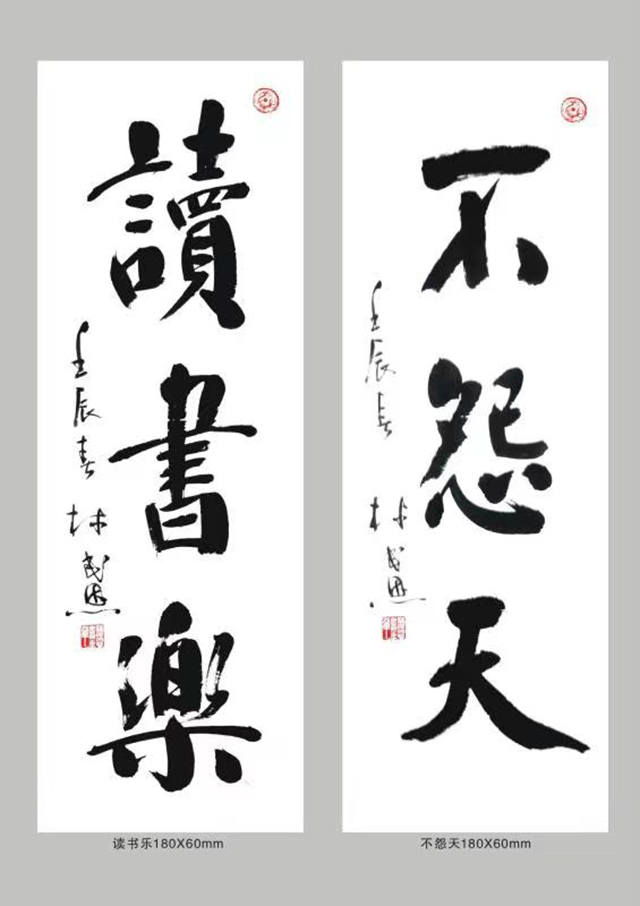 讀書樂
壬辰春
林成恩
读书乐180X60mm
不怨天
壬辰春
林成恩
不怨天180X60mm